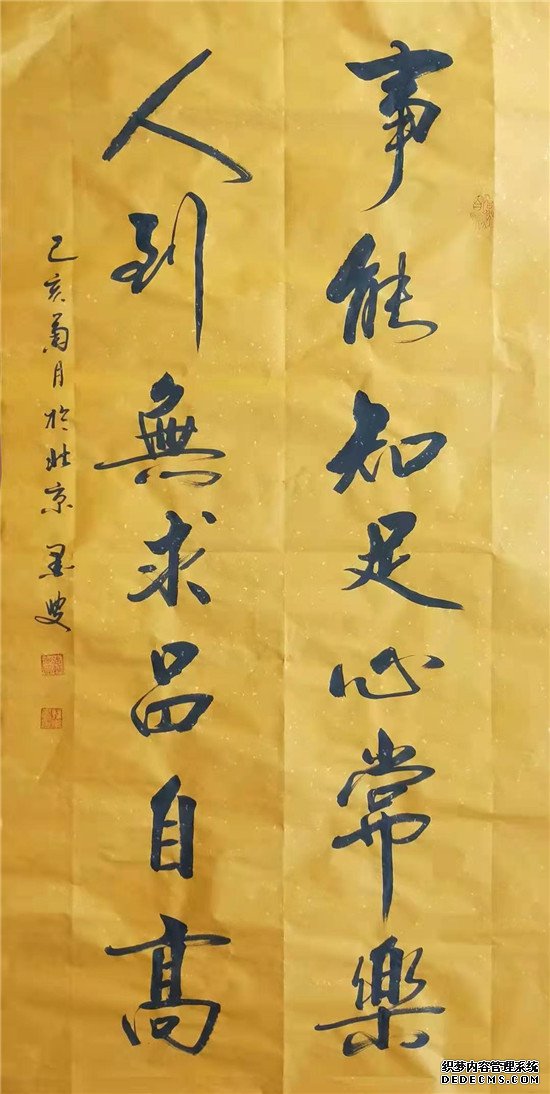 事能知足心常樂
人到無求品自高
己亥菊月於北京 墨叟
织梦内容管理系统
DEDECMS.COM